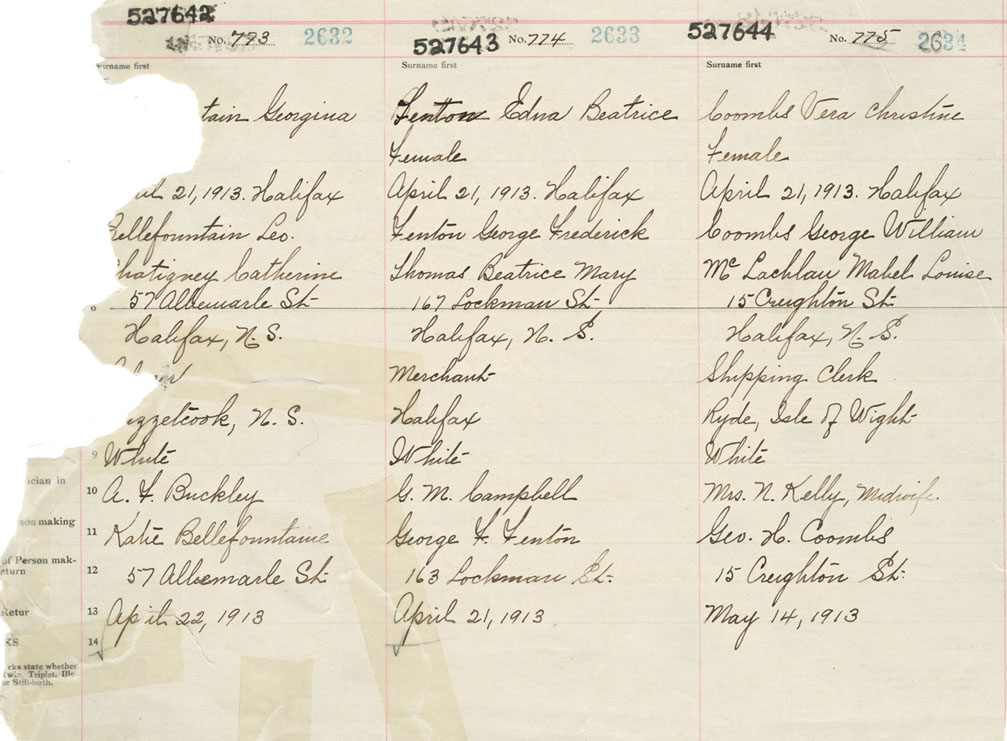 527642
No. 773 2632
527643 No. 774 2633
527644 No. 775 2634
Surname first
Surname first
tain Georgina
Fenton Edna Beatrice
Coombs Vera Christine
Female
Female
21, 1913. Halifax
April 21, 1913. Halifax
April 21, 1913. Halifax
Bellefountain Leo.
Fenton George Frederick
Coombs George William
Chatigney Catherine
Thomas Beatrice Mary
Mc Lachlan Mabel Louise
57 Albemarle St.
167 Lockman St.
15 Creighton St.
Halifax, N. S.
Halifax, N. S.
Halifax, N. S.
Merchant
Shipping Clerk
ezzetcook, N. S.
Halifax
Ryde, Isle of Wight
9 White
White
White
ician in
10 A. F. Buckley
G. M. Campbell
Mrs. N. Kelly, Midwife.
son making
11 Katie Bellefountaine
George F. Fenton
Geo. H. Coombs
of Person mak-
eturn
12 57 Albemarle St.
163 Lockman St.
15 Creighton St.
Retur
13 April 22, 1913
April 21, 1913
May 14, 1913
KS
14
rks state whether
Twin. Triplet. Ille-
or Still-birth.